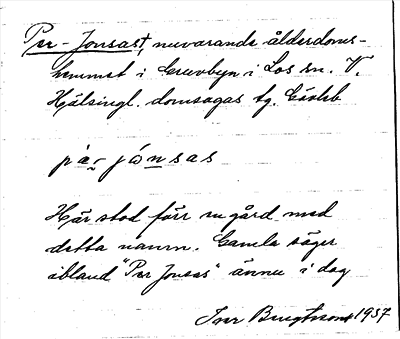 Per-Jonsast, nuvarande ålderdoms-
hemmet i Gruvbyn i Los sn. V.
Hälsingl. domsagas tg. Gävleb
pa᷉r jónsas
Här stod förr en gård med
detta namn. Gamla säger
ibland "Per Jonsas" ännu i dag
Ivar Bengtsson 1937